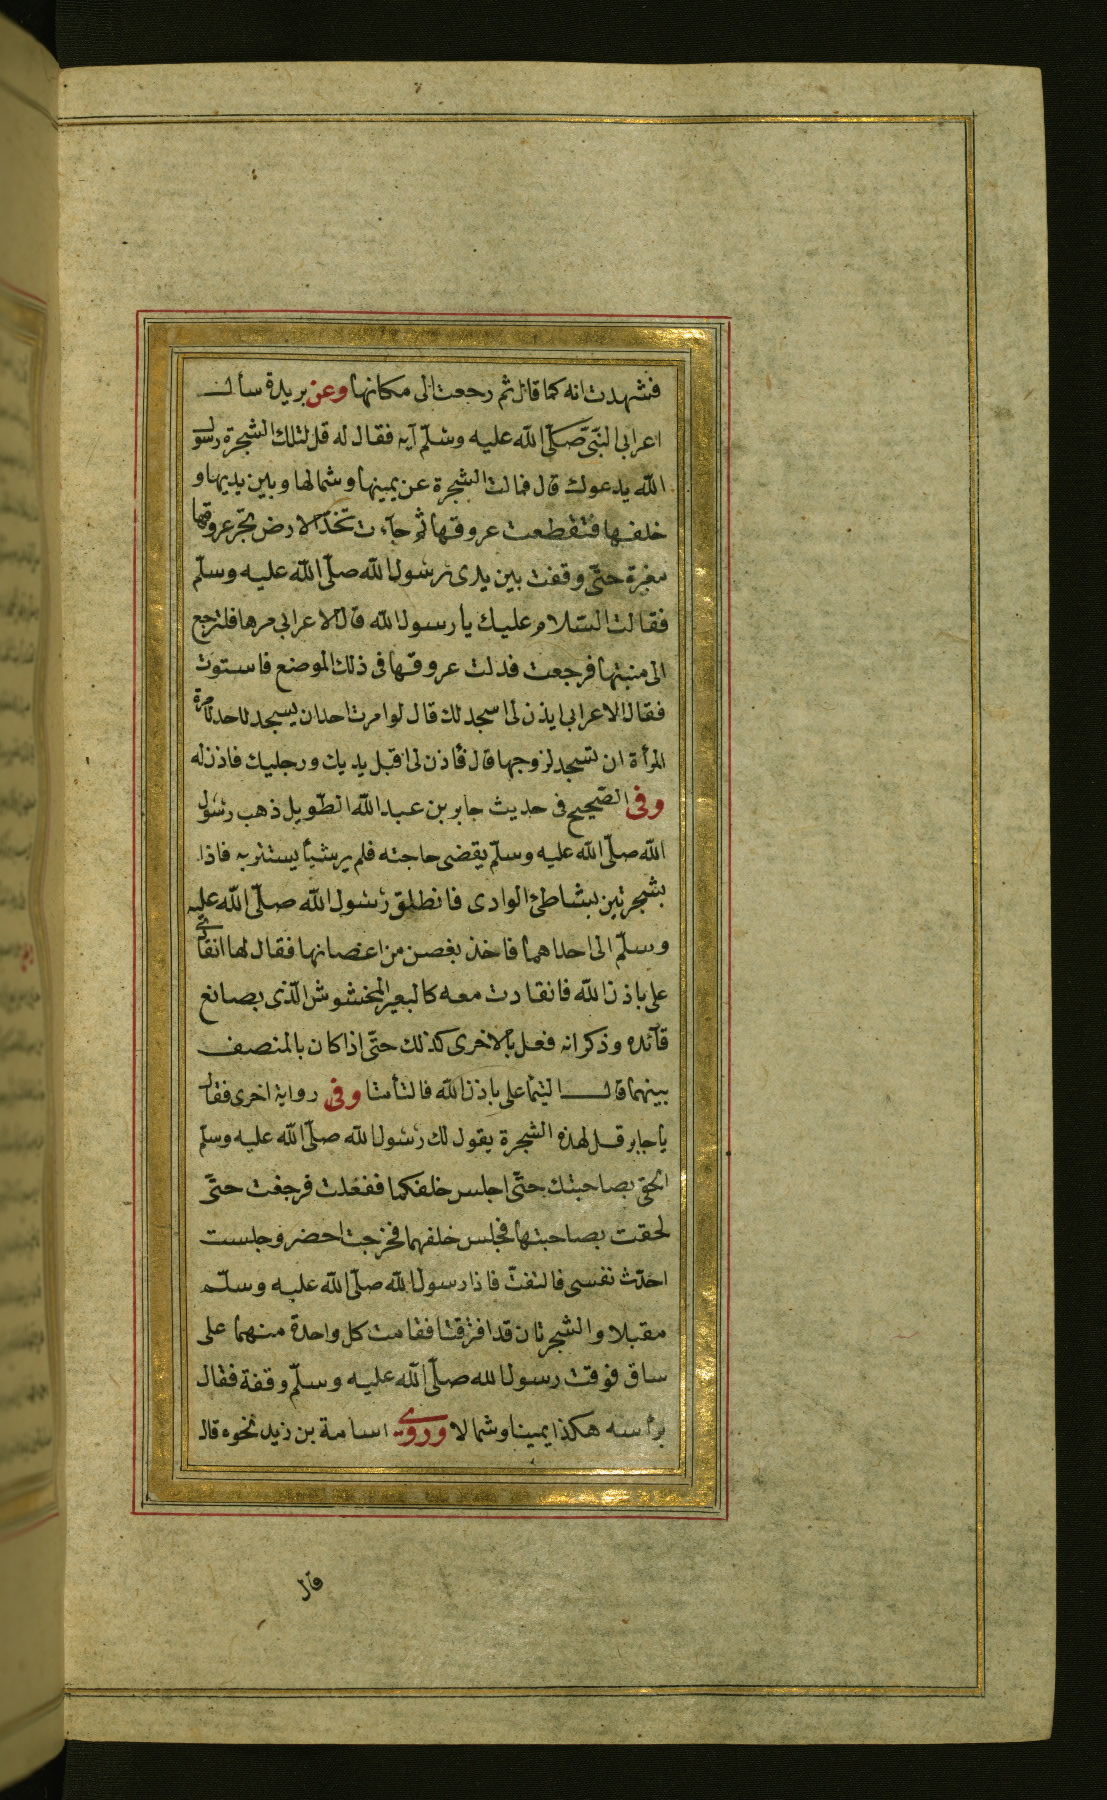 فشهدت انه كما قال ثم رجعت الى مكانها وعن بريدة سأل
اعرابى النّبىّ صلّى الله عليه وسلّم آية فقال له قل لتلك الشجرة رسول
الله يدعوك قال فمالت الشجرة عن يمينها وشمالها وبين يديها و
خلفها فتقطعت عروقها ثم جآءت تخدّ الارض تجرّ عروقها
مغبرة حتّى وقفت بين يدى رسول الله صلّى الله عليه وسلّم
فقالت السّلام عليك يا رسول الله قال الاعرابى مرها فلترجع
الى منبتها فرجعت فدلت عروقها فى ذلك الموضع فاستوت
فقال الاعرابى ايذن لى اسجد لك قال لو امرت احدا ن يسجد لاحد لامرت
المرأة ان تسجد لزوجها قال فأذن لى اقبل يديك ورجليك فاذن له
وفى الصّحيح فى حديث جابر بن عبد الله الطّويل ذهب رسول
الله صلّى الله عليه وسلّم يقضى حاجته فلم ير شيأ يستتر به فاذا
بشجرتين بشاطئ الوادى فانطلق رسول الله صلّى الله عليه
وسلّم الى احداهما فاخذ بغصن من اغصانها فقال لها انقادى
على باذن الله فانقادت معه كالبعير المخشوش الّذى يصانع
قآئده وذكر انه فعل بالاخرى كذلك حتّى اذا كان بالمنصف
بينهما قال التيما على باذن الله فالتأمتا وفى رواية اخرى فقال
يا جابر قل لهذه الشجرة يقول لك رسول الله صلّى الله عليه وسلّم
الحقى بصاحبتك حتّى اجلس خلفكما ففعلت فرجعت حتّى
لحقت بصاحبتها فجلس خلفهما فخرجت احضر وجلست
احدّث نفسى فالتفتّ فاذا رسول الله صلّى الله عليه وسلّم
مقبلا والشجرتان قد افترقتا فقامت كل واحدة منهما على
ساق فوقف رسول الله صلّى الله عليه وسلّم وقفة فقال
برأسه هكذا يمينا وشمالا وروى اسامة بن زيد نحوه قال
قال